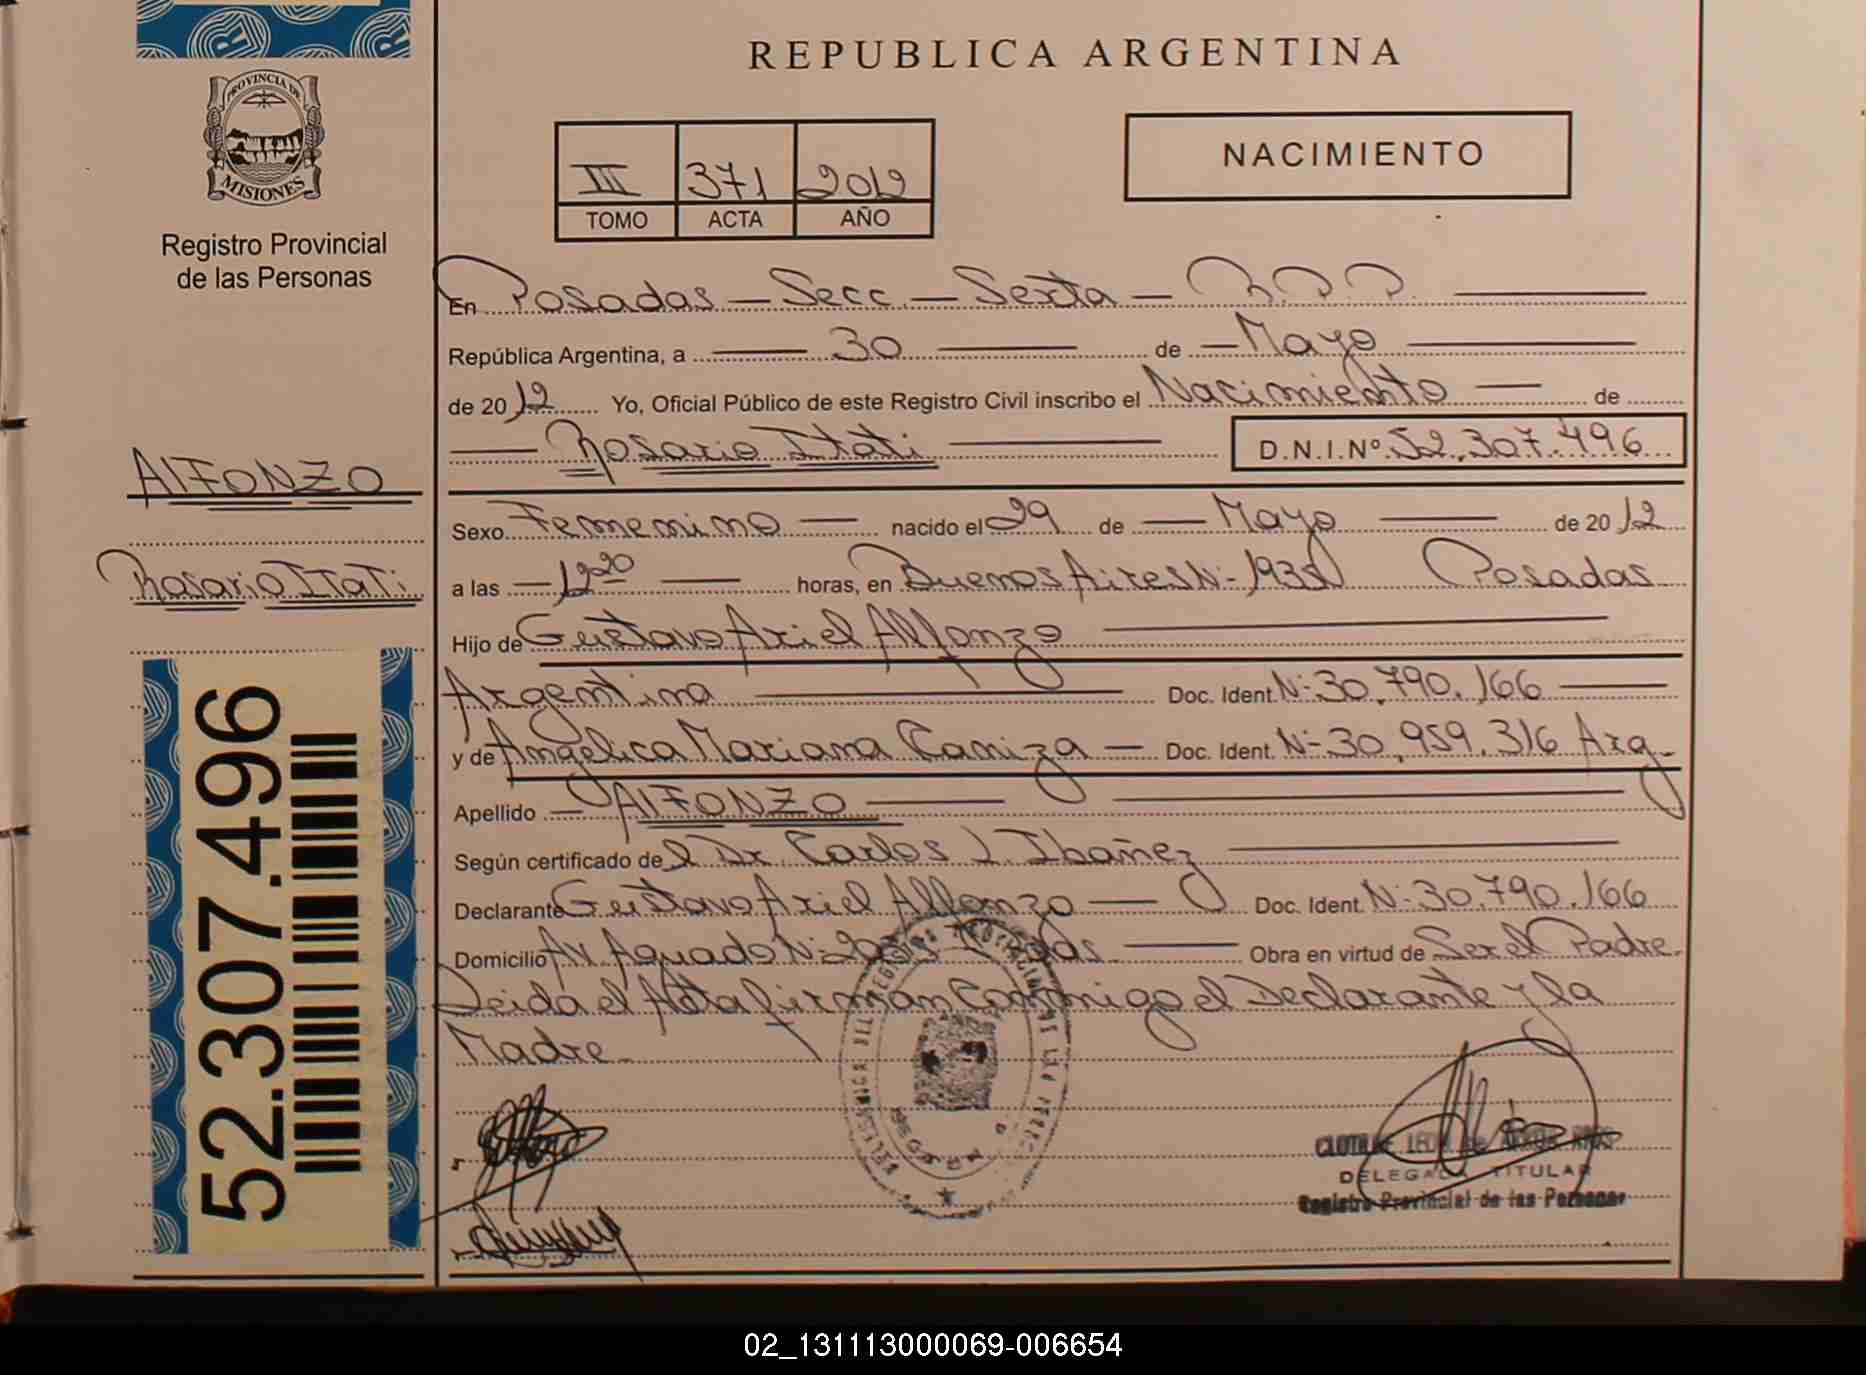 REPUBLICA ARGENTINA
PROVINCIA DE
MISIONES
Registro Provincial
de las Personas
III 371 2012
TOMO ACTA AÑO
NACIMIENTO
En Posadas - Secc. - Sexta - R.P.P.
República Argentina, a 30 de Mayo
de 2012 Yo, Oficial Público de este Registro Civil inscribo el Nacimiento de
Rosario Itati D.N.I.Nº 52.307.496
AlFONZO
Rosario ITaTi
Sexo Femenino nacido el 29 de Mayo de 2012
a las 12 20 horas, en Buenos Aires Nº Posadas
Hijo de Gustavo Ariel Alfonzo
Argentina Doc. Ident. Nº 30.790.166
y de Angelica Mariana Caniza Doc. Ident. Nº 30.959.316 Arg.
Apellido AlFONZO
Según certificado del Dr Carlos J Ibañez
Declarante Gustavo Ariel Alfonzo Doc. Ident. Nº 30.790.166
Domicilio Av Aguado Nº Obra en virtud de Ser el Padre.
Leida el Acta firman Conmigo el Declarante y la
Madre.
52.307.496
DELEGADA TITULAR
Registro Provincial de las Personas
02_131113000069-006654